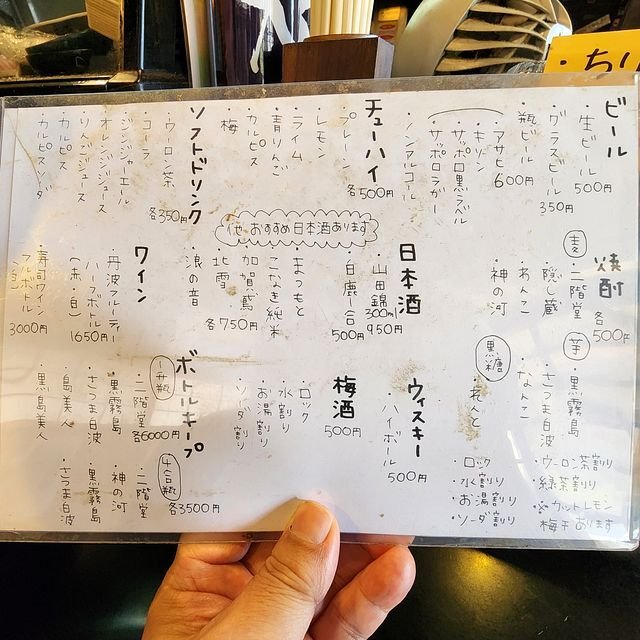 ちり
ビール
・生ビール 500円
・グラスビール 350円
・瓶ビール 600円
・アサヒ
・キリン
・サッポロ黒ラベル
・サッポロラガー
・ノンアルコール
チューハイ
各500円
・プレーン
・レモン
・ライム
・青りんご
・カルピス
・梅
ソフトドリンク
各350円
・ウーロン茶
・コーラ
・ジンジャーエール
・オレンジジュース
・カルピス
・カルピスソーダ
焼酎
各500円
麦
・二階堂
・隠し蔵
・あんこ
・神の河
芋
・黒霧島
・さつま白波
・なんこ
黒糖
・れんと
・ロック
・水割り
・お湯割り
・ソーダ割り
・ウーロン茶割り
・緑茶割り
・※カットレモン
梅干あります
他、おすすめ日本酒あります
日本酒
・山田錦 300ml 950円
・白鹿一合 500円
・まつもと
・こなき純米
・加賀鳶
・北雪
・浪の音
各750円
ワイン
・丹波ワイン
ハーフボトル
(赤・白)
1650円
・寿司ワイン
フルボトル
(白)
3000円
ウィスキー
・ハイボール
500円
梅酒
500円
・ロック
・水割り
・お湯割り
・ソーダ割り
ボトルキープ
一升瓶
・二階堂
・黒霧島
・さつま白波
・島美人
・黒島美人
各6000円
四合瓶
・二階堂
・神の河
・黒霧島
・さつま白波
各3500円